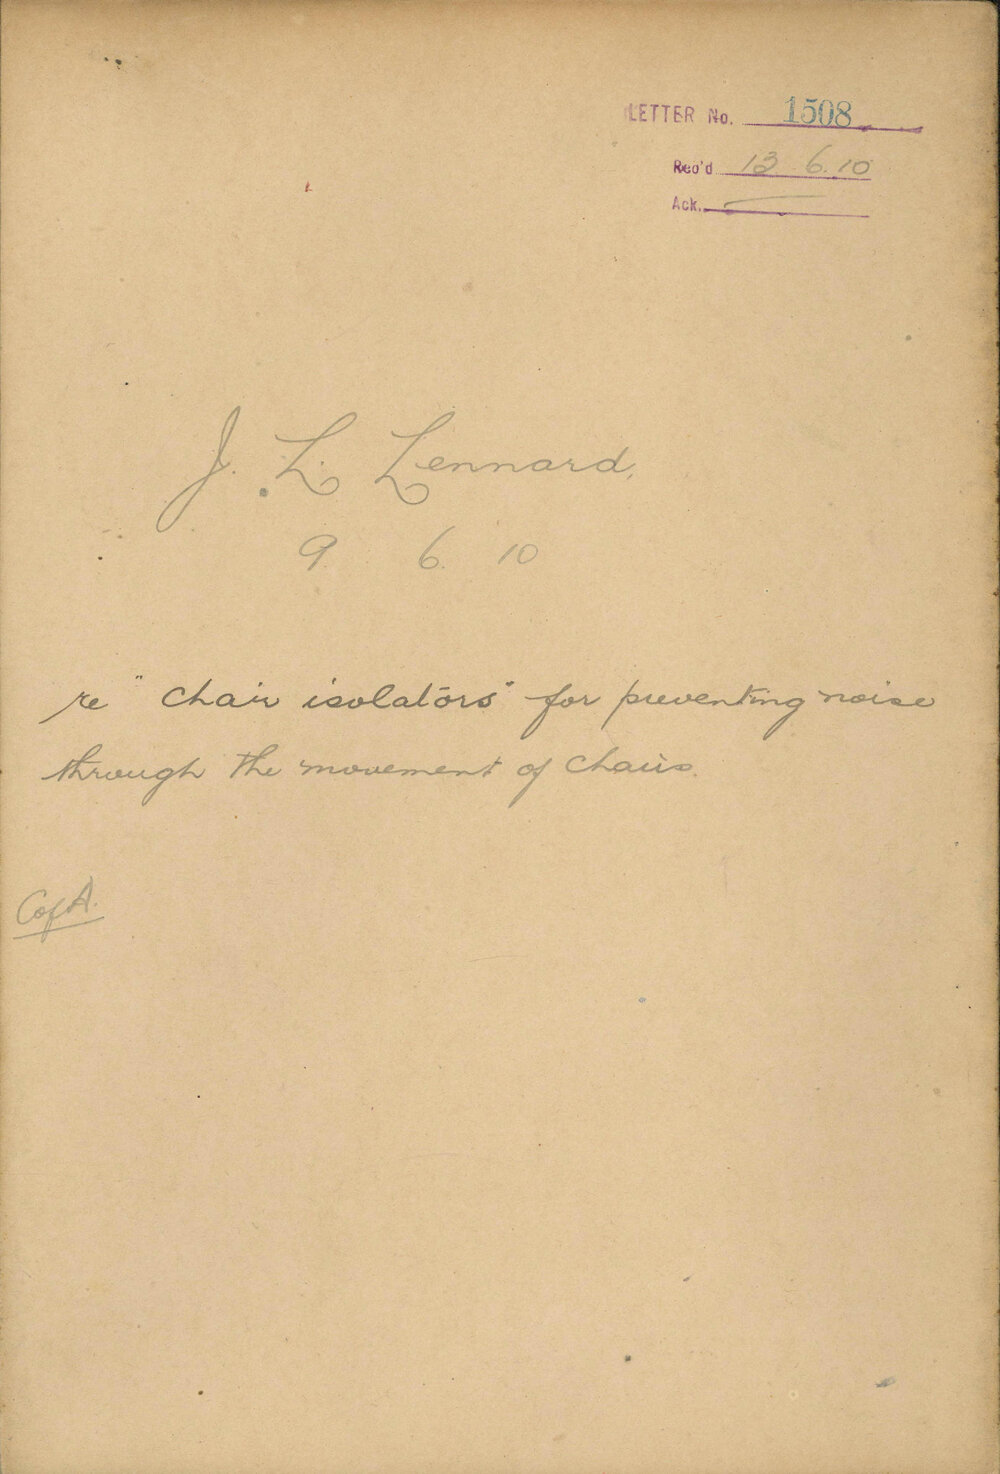 LETTER No. 1508
Rec'd 13 6.10
Ack.
J. L. Lennard,
9. 6. 10
re "chair isolators" for preventing noise
through the movement of chairs.
C of A.